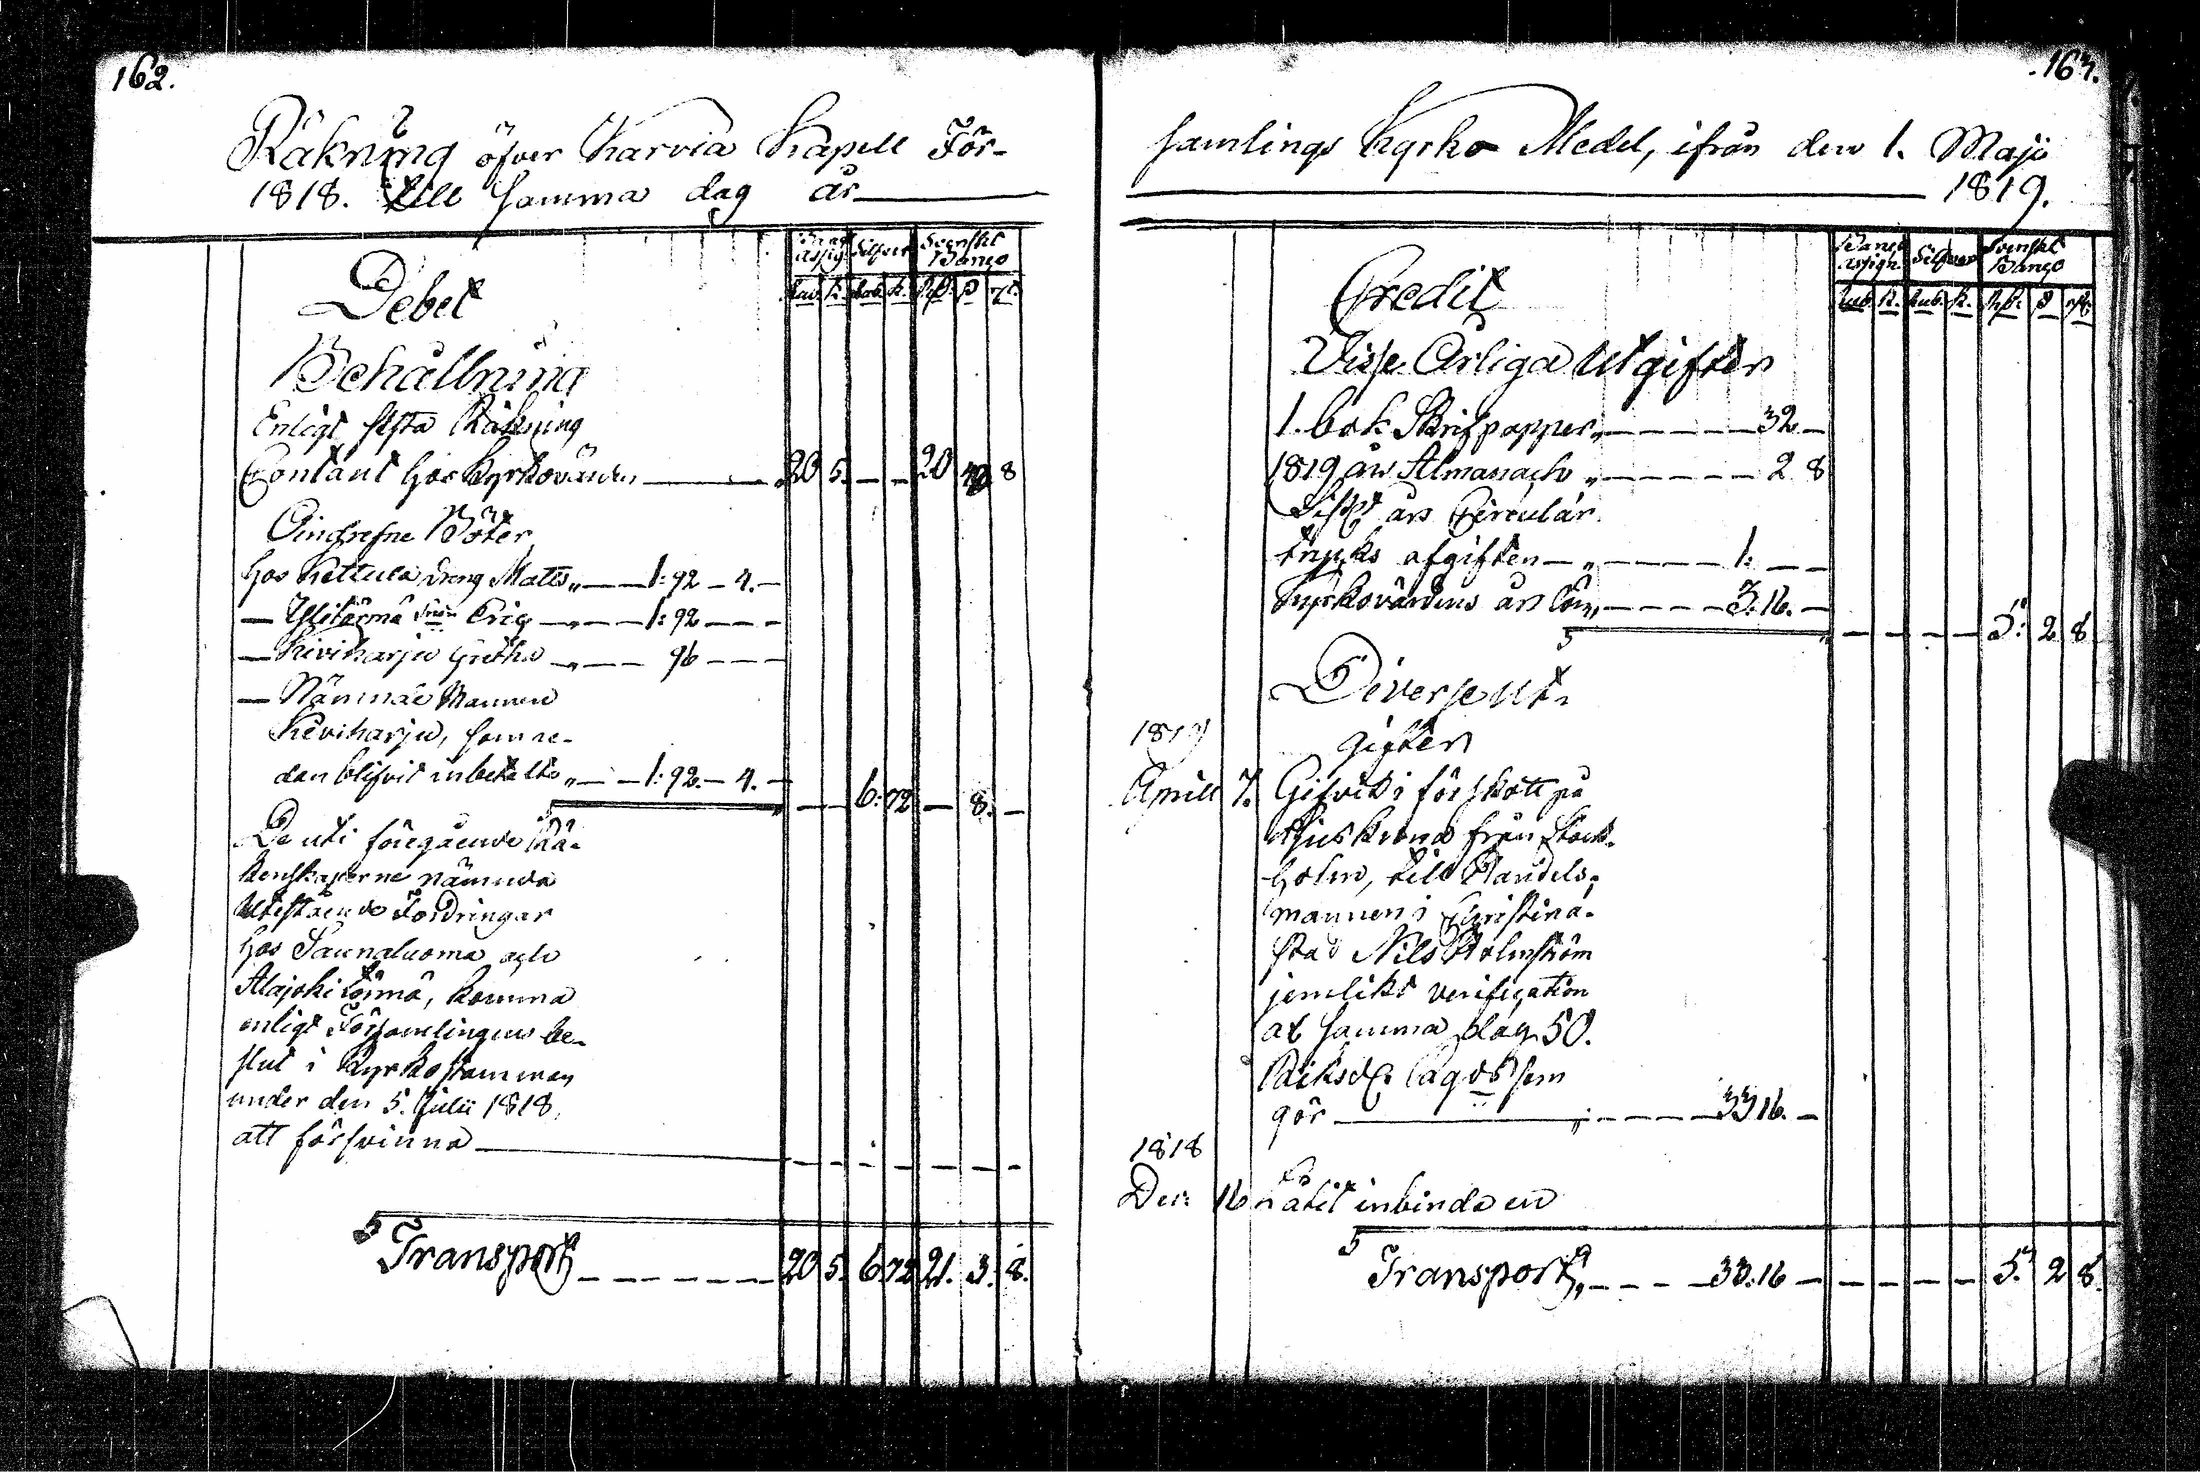 162.
Räkning öfver Karvia Kapell För-
1818. till samma dag år
Banco Assig. Silfver Svenskt Banco
Rub. K. Rub. K. Rd. s. rst.
Debet
Behållning
Enligt sista Räkning
Contant hos Kyrkovärden 20 5. — — 20 43 8
Oindrefne Böter
hos Kettula dreng Matts „ — 1:92 — 4. —
— Ylitörmä Erig — „ — 1:92 — — —
— Kiviharju Gretha — „ — 96 — — —
— Nämnde Mannen
Kiviharju, som re-
dan blifvit inbetalte „ — 1:92. — 4. —
— — 6:72 — 8. —
De uti föregående Rä-
kenskaperne nämnda
Utestående Fordringar
hos Saunaluoma och
Alajokitörmä, komma
enligt Församlingens be-
slut i Kyrkostamman
under den 5. Julii 1818,
att försvinna — — — — — — —
Transport — 20 5. 6 72 21. 3. 8.
163.
samlings Kyrko Medel, ifrån den 1. Maji
1819.
Banco Assign. Silfver Svenskt Banco
Rub. K. Rub. K. Rd. s. rst.
Credit
Visse Årliga Utgifter
1. bok Skrifpapper „ — 32 —
1819 års Almanach „ — 2 8
Sistl. års Circulär
trycks afgiften — „ — 1: — —
Kyrkovärdens års lön „ — 3. 16. —
— — — — 5. 2 8
Diverse Ut-
gifter
1819
Aprill 7. Gifvit i förskott på
Ljuskrona från Stock-
holm, till Handels-
mannen i Christina-
stad Nils Holmström
jemlikt verification
af samma dag 50.
Riksd. som
gör — 33 16. —
1818
Dec: 16 Låtit inbinda en
Transport „ — 33. 16 — — — — — 5. 2 8.